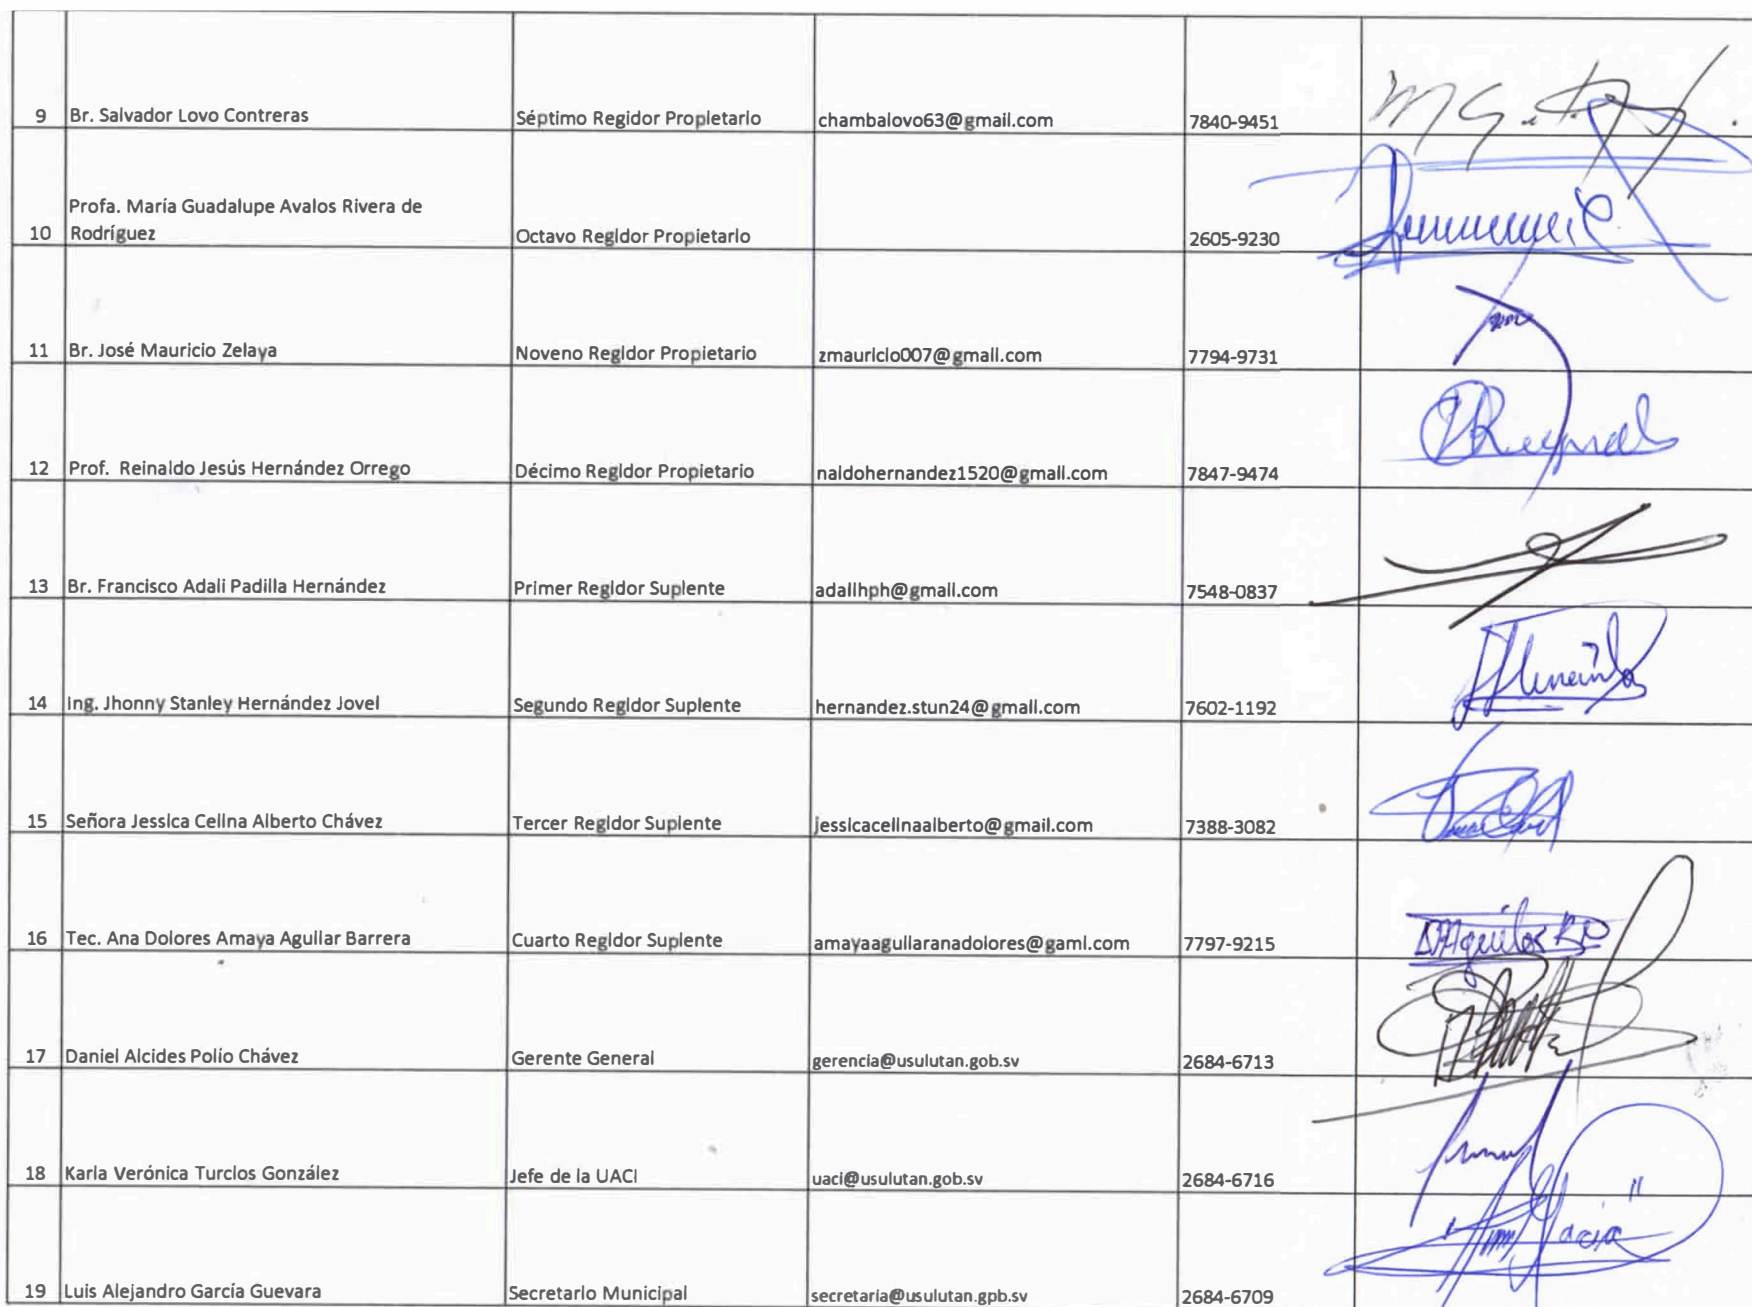 9 Br. Salvador Lovo Contreras Séptimo Regidor Propietario chambalovo63@gmail.com 7840-9451
Profa. María Guadalupe Avalos Rivera de
10 Rodríguez Octavo Regidor Propietario 2605-9230
11 Br. José Mauricio Zelaya Noveno Regidor Propietario zmauricio007@gmail.com 7794-9731
12 Prof. Reinaldo Jesús Hernández Orrego Décimo Regidor Propietario naldohernandez1520@gmail.com 7847-9474
13 Br. Francisco Adali Padilla Hernández Primer Regidor Suplente adalihph@gmail.com 7548-0837
14 Ing. Jhonny Stanley Hernández Jovel Segundo Regidor Suplente hernandez.stun24@gmail.com 7602-1192
15 Señora Jessica Celina Alberto Chávez Tercer Regidor Suplente jessicacelinaalberto@gmail.com 7388-3082
16 Tec. Ana Dolores Amaya Aguilar Barrera Cuarto Regidor Suplente amayaaguilaranadolores@gaml.com 7797-9215
17 Daniel Alcides Polío Chávez Gerente General gerencia@usulutan.gob.sv 2684-6713
18 Karla Verónica Turcios González Jefe de la UACI uaci@usulutan.gob.sv 2684-6716
19 Luis Alejandro García Guevara Secretario Municipal secretaria@usulutan.gpb.sv 2684-6709